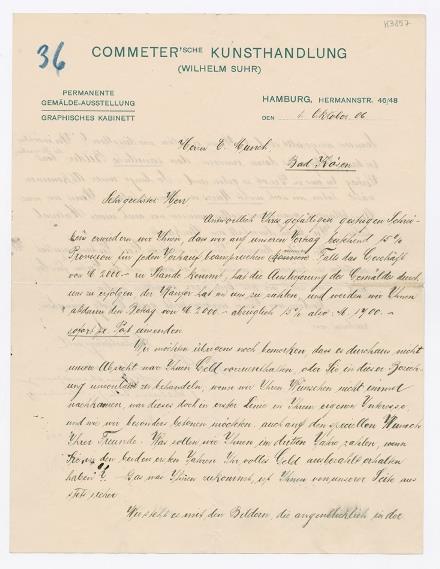 K3857
36
COMMETER'SCHE KUNSTHANDLUNG
(WILHELM SUHR)
PERMANENTE
GEMÄLDE-AUSSTELLUNG
GRAPHISCHES KABINETT
HAMBURG, HERMANNSTR. 46/48
DEN 1. Oktober 06
Herrn E. Munch,
Bad Kösen
Sehr geehrter Herr
Antwortlich Ihres gefälligen gestrigen Schrei-
bens erwidern wir Ihnen, dass wir auf unseren Vertrag bestehend 15%
Provision für jeden Verkauf beanspruchen können. Falls das Geschäft
von M 2000.- zu Stande kommt, hat die Auslieferung der Gemälde durch
uns zu erfolgen der Käufer hat an uns zu zahlen, und werden wir Ihnen
alsdann den Betrag von M 2000.- abzüglich 15% also M. 1700.-
sofort per Post einsenden.
Wir möchten übrigens noch bemerken, dass es durchaus nicht
unsere Absicht war Ihnen Geld vorzuenthalten, oder Sie in dieser Bezieh-
ung zu behandeln, wenn wir Ihren Wünschen nicht einmal
nachkamen, war dieses doch in erster Linie in Ihrem eigenen Interesse,
und wie wir besonders betonen möchten, auch auf den speciellen Wunsch
Ihrer Freunde. Was sollen wir Ihnen im dritten Jahre zahlen, wenn
Sie in den beiden ersten Jahren Ihr volles Geld ausbezahlt erhalten
haben? Das was Ihnen zukommt, ist Ihnen von unserer Seite aus
stets sicher.
Wie steht es mit den Bildern, die augenblicklich in der